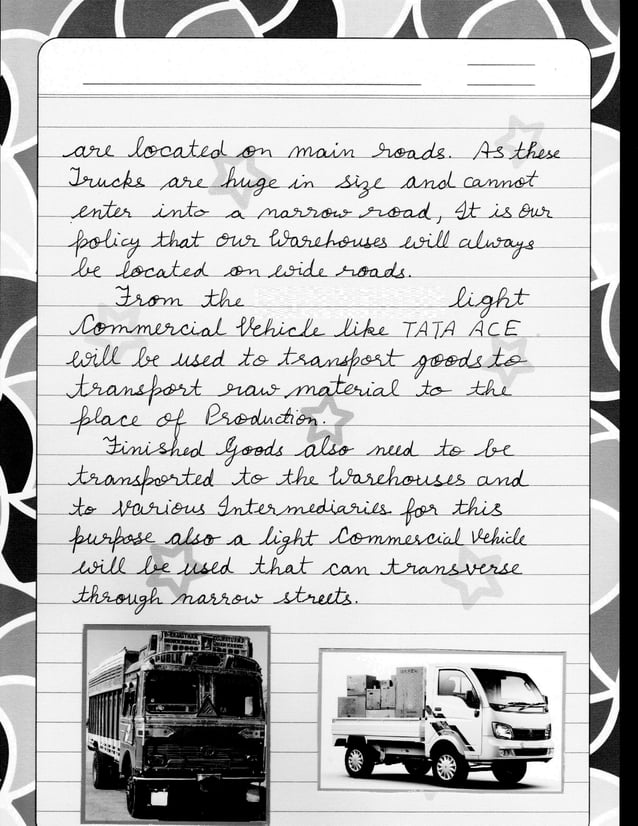 are located on main roads. As these
Trucks are huge in size and cannot
enter into a narrow road, It is our
policy that our Warehouses will always
be located on wide roads.
From the light
Commercial Vehicle like TATA ACE
will be used to transport goods to
transport raw material to the
place of Production.
Finished Goods also need to be
transported to the Warehouses and
to various Intermediaries for this
purpose also a light Commercial Vehicle
will be used that can transverse
through narrow streets.